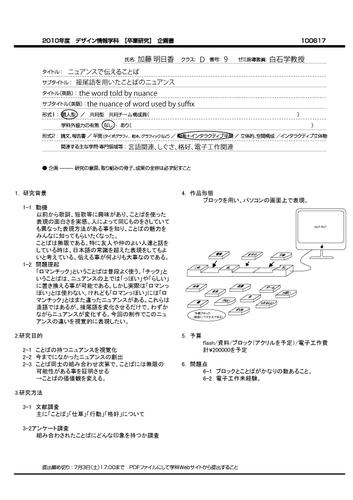 2010年度 デザイン情報学科 【卒業研究】 企画書 100617
氏名 加藤 明日香 クラス: D 番号: 9 ゼミ指導教員: 白石学教授
タイトル: ニュアンスで伝えることば
サブタイトル: 接尾語を用いたことばのニュアンス
タイトル(英語): the word told by nuance
サブタイトル(英語): the nuance of word used by suffix
形式1: 個人型 / 共同型 共同チーム構成員( )
学科外協力の有無 なし・あり( )
関連する主な学問・専門領域等: 言語関連、しぐさ、格好、電子工作関連
1. 研究背景
1-1 動機
以前から歌詞、短歌等に興味があり、ことばを使った
表現の面白さを実感。人によって同じものをさしていて
も異なった表現方法がある事を知り、ことばの魅力を
みんなに知ってもらいたくなった。
ことばは無限である。特に友人や仲のよい人達と話を
している時は、日本語の常識を超えた表現をしてもよ
いと考えている。伝える事が何よりも大事なのである。
1-2 問題提起
「ロマンチック」ということばは普段よく使う。「チック」と
いうことばは、ニュアンスの上では「っぽい」や「らしい」
に置き換える事が可能である。しかし実際は「ロマンっ
ぽい」とは使わない。けれども「ロマンっぽい」には「ロ
マンチック」とはまた違ったニュアンスがある。これらは
造語ではあるが、接尾語を変化させるだけで、わずか
ながらニュアンスが変化する。今回の制作でこのニュ
アンスの違いを視覚的に表現したい。
2.研究目的
2-1 ことばの持つニュアンスを視覚化
2-2 今までになかったニュアンスの創出
2-3 ことば同士の組み合わせ次第で、ことばには無限の
可能性がある事を証明させる
→ことばの価値観を変える。
3.研究方法
3-1 文献調査
主に「ことば」「仕草」「行動」「格好」について
3-2アンケート調査
組み合わされたことばにどんな印象を持つか調査
4. 作品形態
ブロックを用い、パソコンの画面上で表現。
OUT PUT
5. 予算
flash/資料/ブロック(アクリルを予定)/電子工作費
計¥200000を予定
6. 問題点
6-1 ブロックとことばがかなりの数あること。
6-2 電子工作未経験。
提出締め切り:7月3日(土)17:00まで PDFファイルにして学科Webサイトから提出すること